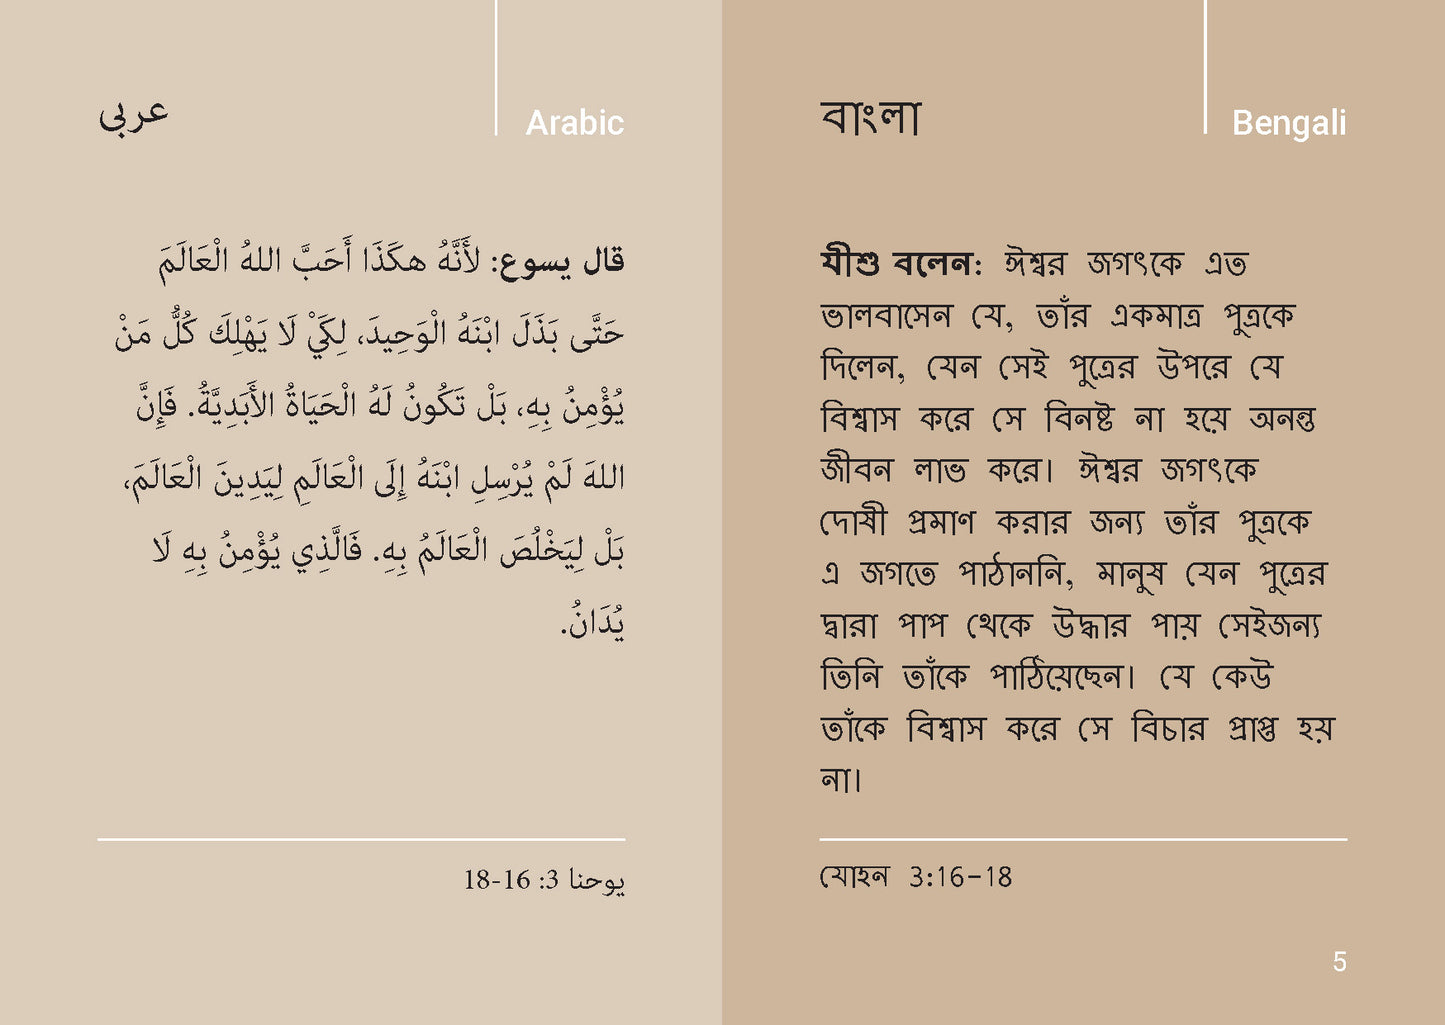 عربى
Arabic
قال يسوع: لأَنَّهُ هكَذَا أَحَبَّ اللهُ الْعَالَمَ
حَتَّى بَذَلَ ابْنَهُ الْوَحِيدَ، لِكَيْ لَا يَهْلِكَ كُلُّ مَنْ
يُؤْمِنُ بِهِ، بَلْ تَكُونُ لَهُ الْحَيَاةُ الأَبَدِيَّةُ. فَإِنَّ
اللهَ لَمْ يُرْسِلِ ابْنَهُ إِلَى الْعَالَمِ لِيَدِينَ الْعَالَمَ،
بَلْ لِيَخْلُصَ الْعَالَمُ بِهِ. فَالَّذِي يُؤْمِنُ بِهِ لَا
يُدَانُ.
يوحنا 3: 16-18
বাংলা
Bengali
যীশু বলেন: ঈশ্বর জগৎকে এত
ভালবাসেন যে, তাঁর একমাত্র পুত্রকে
দিলেন, যেন সেই পুত্রের উপরে যে
বিশ্বাস করে সে বিনষ্ট না হয়ে অনন্ত
জীবন লাভ করে। ঈশ্বর জগৎকে
দোষী প্রমাণ করার জন্য তাঁর পুত্রকে
এ জগতে পাঠাননি, মানুষ যেন পুত্রের
দ্বারা পাপ থেকে উদ্ধার পায় সেইজন্য
তিনি তাঁকে পাঠিয়েছেন। যে কেউ
তাঁকে বিশ্বাস করে সে বিচার প্রাপ্ত হয়
না।
যোহন 3:16-18
5